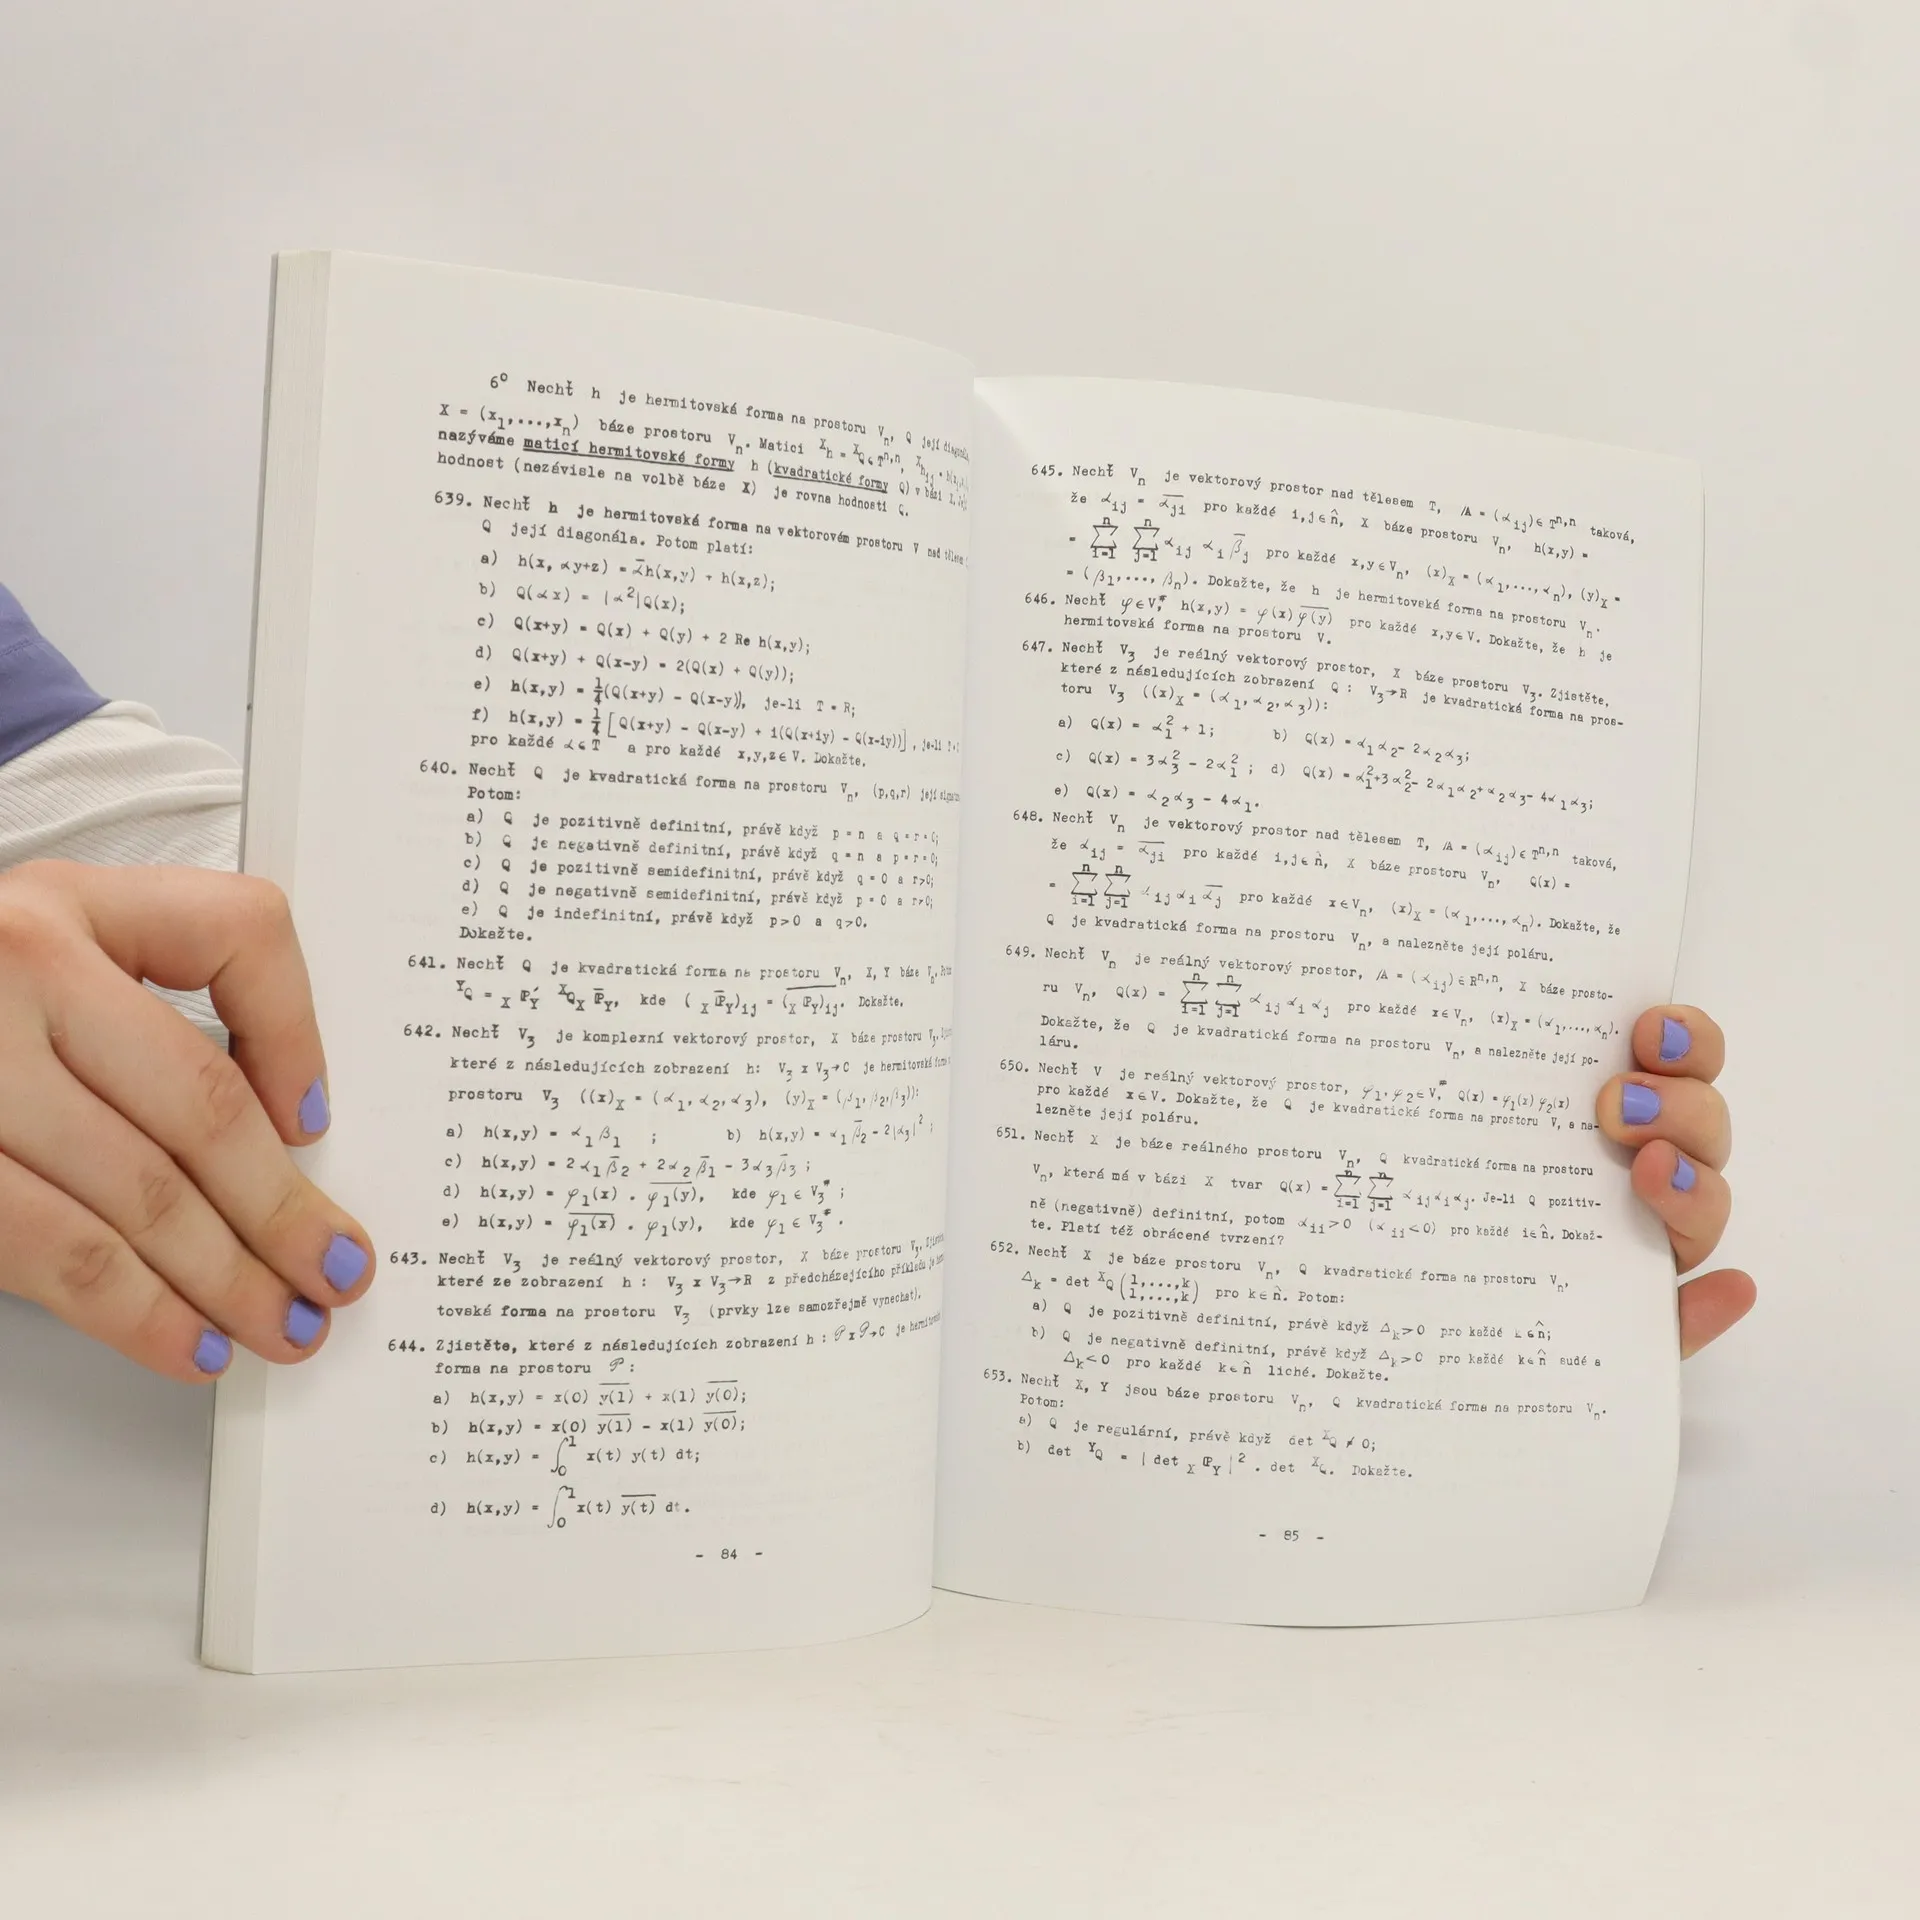 6° Nechť h je hermitovská forma na prostoru V_n, Q její
X = (x_1,...,x_n) báze prostoru V_n. Matici ^X h = ^X Q ∈ T^{n,n},
nazýváme maticí hermitovské formy h (kvadratické formy Q) v bázi X,
hodnost (nezávisle na volbě báze X) je rovna hodnosti Q.
639. Nechť h je hermitovská forma na vektorovém prostoru V nad
Q její diagonála. Potom platí:
a) h(x, αy+z) = \overline{α}h(x,y) + h(x,z);
b) Q(αx) = |α²|Q(x);
c) Q(x+y) = Q(x) + Q(y) + 2 Re h(x,y);
d) Q(x+y) + Q(x-y) = 2(Q(x) + Q(y));
e) h(x,y) = 1/4(Q(x+y) - Q(x-y)), je-li T = R;
f) h(x,y) = 1/4[Q(x+y) - Q(x-y) + i(Q(x+iy) - Q(x-iy))], je-li
pro každé α∈T a pro každé x,y,z∈V. Dokažte.
640. Nechť Q je kvadratická forma na prostoru V_n, (p,q,r) její
Potom:
a) Q je pozitivně definitní, právě když p = n a q = r = 0;
b) Q je negativně definitní, právě když q = n a p = r = 0;
c) Q je pozitivně semidefinitní, právě když q = 0 a r>0;
d) Q je negativně semidefinitní, právě když p = 0 a r>0;
e) Q je indefinitní, právě když p>0 a q>0.
Dokažte.
641. Nechť Q je kvadratická forma na prostoru V_n, X, Y báze V_n.
^Y Q = _X ℙ'_Y ^X Q _X \overline{ℙ}_Y, kde (_X \overline{ℙ}_Y)_{ij} = \overline{(_X ℙ_Y)_{ij}}. Dokažte.
642. Nechť V_3 je komplexní vektorový prostor, X báze prostoru V_3.
které z následujících zobrazení h: V_3 x V_3→C je hermitovská
prostoru V_3 ((x)_X = (α_1, α_2, α_3), (y)_X = (β_1, β_2, β_3)):
a) h(x,y) = α_1 β_1 ; b) h(x,y) = α_1 \overline{β}_2 - 2|α_3|² ;
c) h(x,y) = 2α_1 \overline{β}_2 + 2α_2 \overline{β}_1 - 3α_3 \overline{β}_3 ;
d) h(x,y) = φ_1(x) . \overline{φ_1(y)}, kde φ_1 ∈ V_3^# ;
e) h(x,y) = \overline{φ_1(x)} . φ_1(y), kde φ_1 ∈ V_3^# .
643. Nechť V_3 je reálný vektorový prostor, X báze prostoru V_3.
které ze zobrazení h : V_3 x V_3→R z předcházejícího příkladu je
tovská forma na prostoru V_3 (prvky lze samozřejmě vynechat).
644. Zjistěte, které z následujících zobrazení h : 𝒫 x 𝒫→C je
forma na prostoru 𝒫 :
a) h(x,y) = x(0) \overline{y(1)} + x(1) \overline{y(0)};
b) h(x,y) = x(0) \overline{y(1)} - x(1) \overline{y(0)};
c) h(x,y) = ∫_0^1 x(t) y(t) dt;
d) h(x,y) = ∫_0^1 x(t) \overline{y(t)} dt.
- 84 -
645. Nechť V_n je vektorový prostor nad tělesem T, 𝔸 = (α_{ij})∈ T^{n,n} taková,
že α_{ij} = \overline{α_{ji}} pro každé i,j∈n̂, X báze prostoru V_n, h(x,y) =
= ∑_{i=1}^n ∑_{j=1}^n α_{ij} α_i \overline{β}_j pro každé x,y∈V_n, (x)_X = (α_1,...,α_n), (y)_X =
= (β_1,..., β_n). Dokažte, že h je hermitovská forma na prostoru V_n.
646. Nechť φ∈V^#, h(x,y) = φ(x)\overline{φ(y)} pro každé x,y∈V. Dokažte, že h je
hermitovská forma na prostoru V.
647. Nechť V_3 je reálný vektorový prostor, X báze prostoru V_3. Zjistěte,
které z následujících zobrazení Q : V_3→R je kvadratická forma na pros-
toru V_3 ((x)_X = (α_1, α_2, α_3)):
a) Q(x) = α_1² + 1; b) Q(x) = α_1 α_2 - 2α_2 α_3;
c) Q(x) = 3α_3² - 2α_1² ; d) Q(x) = α_1²+3α_2²- 2α_1α_2+α_2α_3- 4α_1α_3;
e) Q(x) = α_2α_3 - 4α_1.
648. Nechť V_n je vektorový prostor nad tělesem T, 𝔸 = (α_{ij})∈ T^{n,n} taková,
že α_{ij} = \overline{α_{ji}} pro každé i,j∈n̂, X báze prostoru V_n, Q(x) =
= ∑_{i=1}^n ∑_{j=1}^n α_{ij} α_i \overline{α_j} pro každé x∈V_n, (x)_X = (α_1,..., α_n). Dokažte, že
Q je kvadratická forma na prostoru V_n, a nalezněte její poláru.
649. Nechť V_n je reálný vektorový prostor, 𝔸 = (α_{ij})∈R^{n,n}, X báze prosto-
ru V_n, Q(x) = ∑_{i=1}^n ∑_{j=1}^n α_{ij} α_i α_j pro každé x∈V_n, (x)_X = (α_1,..., α_n).
Dokažte, že Q je kvadratická forma na prostoru V_n, a nalezněte její po-
láru.
650. Nechť V je reálný vektorový prostor, φ_1, φ_2∈V^#, Q(x) = φ_1(x) φ_2(x)
pro každé x∈V. Dokažte, že Q je kvadratická forma na prostoru V, a na-
lezněte její poláru.
651. Nechť X je báze reálného prostoru V_n, Q kvadratická forma na prostoru
V_n, která má v bázi X tvar Q(x) = ∑_{i=1}^n ∑_{j=1}^n α_{ij}α_iα_j. Je-li Q pozitiv-
ně (negativně) definitní, potom α_{ii}>0 (α_{ii}<0) pro každé i∈n̂. Dokaž-
te. Platí též obrácené tvrzení?
652. Nechť X je báze prostoru V_n, Q kvadratická forma na prostoru V_n,
Δ_k = det ^X Q (1,...,k / 1,...,k) pro k∈n̂. Potom:
a) Q je pozitivně definitní, právě když Δ_k>0 pro každé k∈n̂;
b) Q je negativně definitní, právě když Δ_k>0 pro každé k∈n̂ sudé a
Δ_k<0 pro každé k∈n̂ liché. Dokažte.
653. Nechť X, Y jsou báze prostoru V_n, Q kvadratická forma na prostoru V_n.
Potom:
a) Q je regulární, právě když det ^X Q ≠ 0;
b) det ^Y Q = |det _X ℙ_Y|² . det ^X Q. Dokažte.
- 85 -